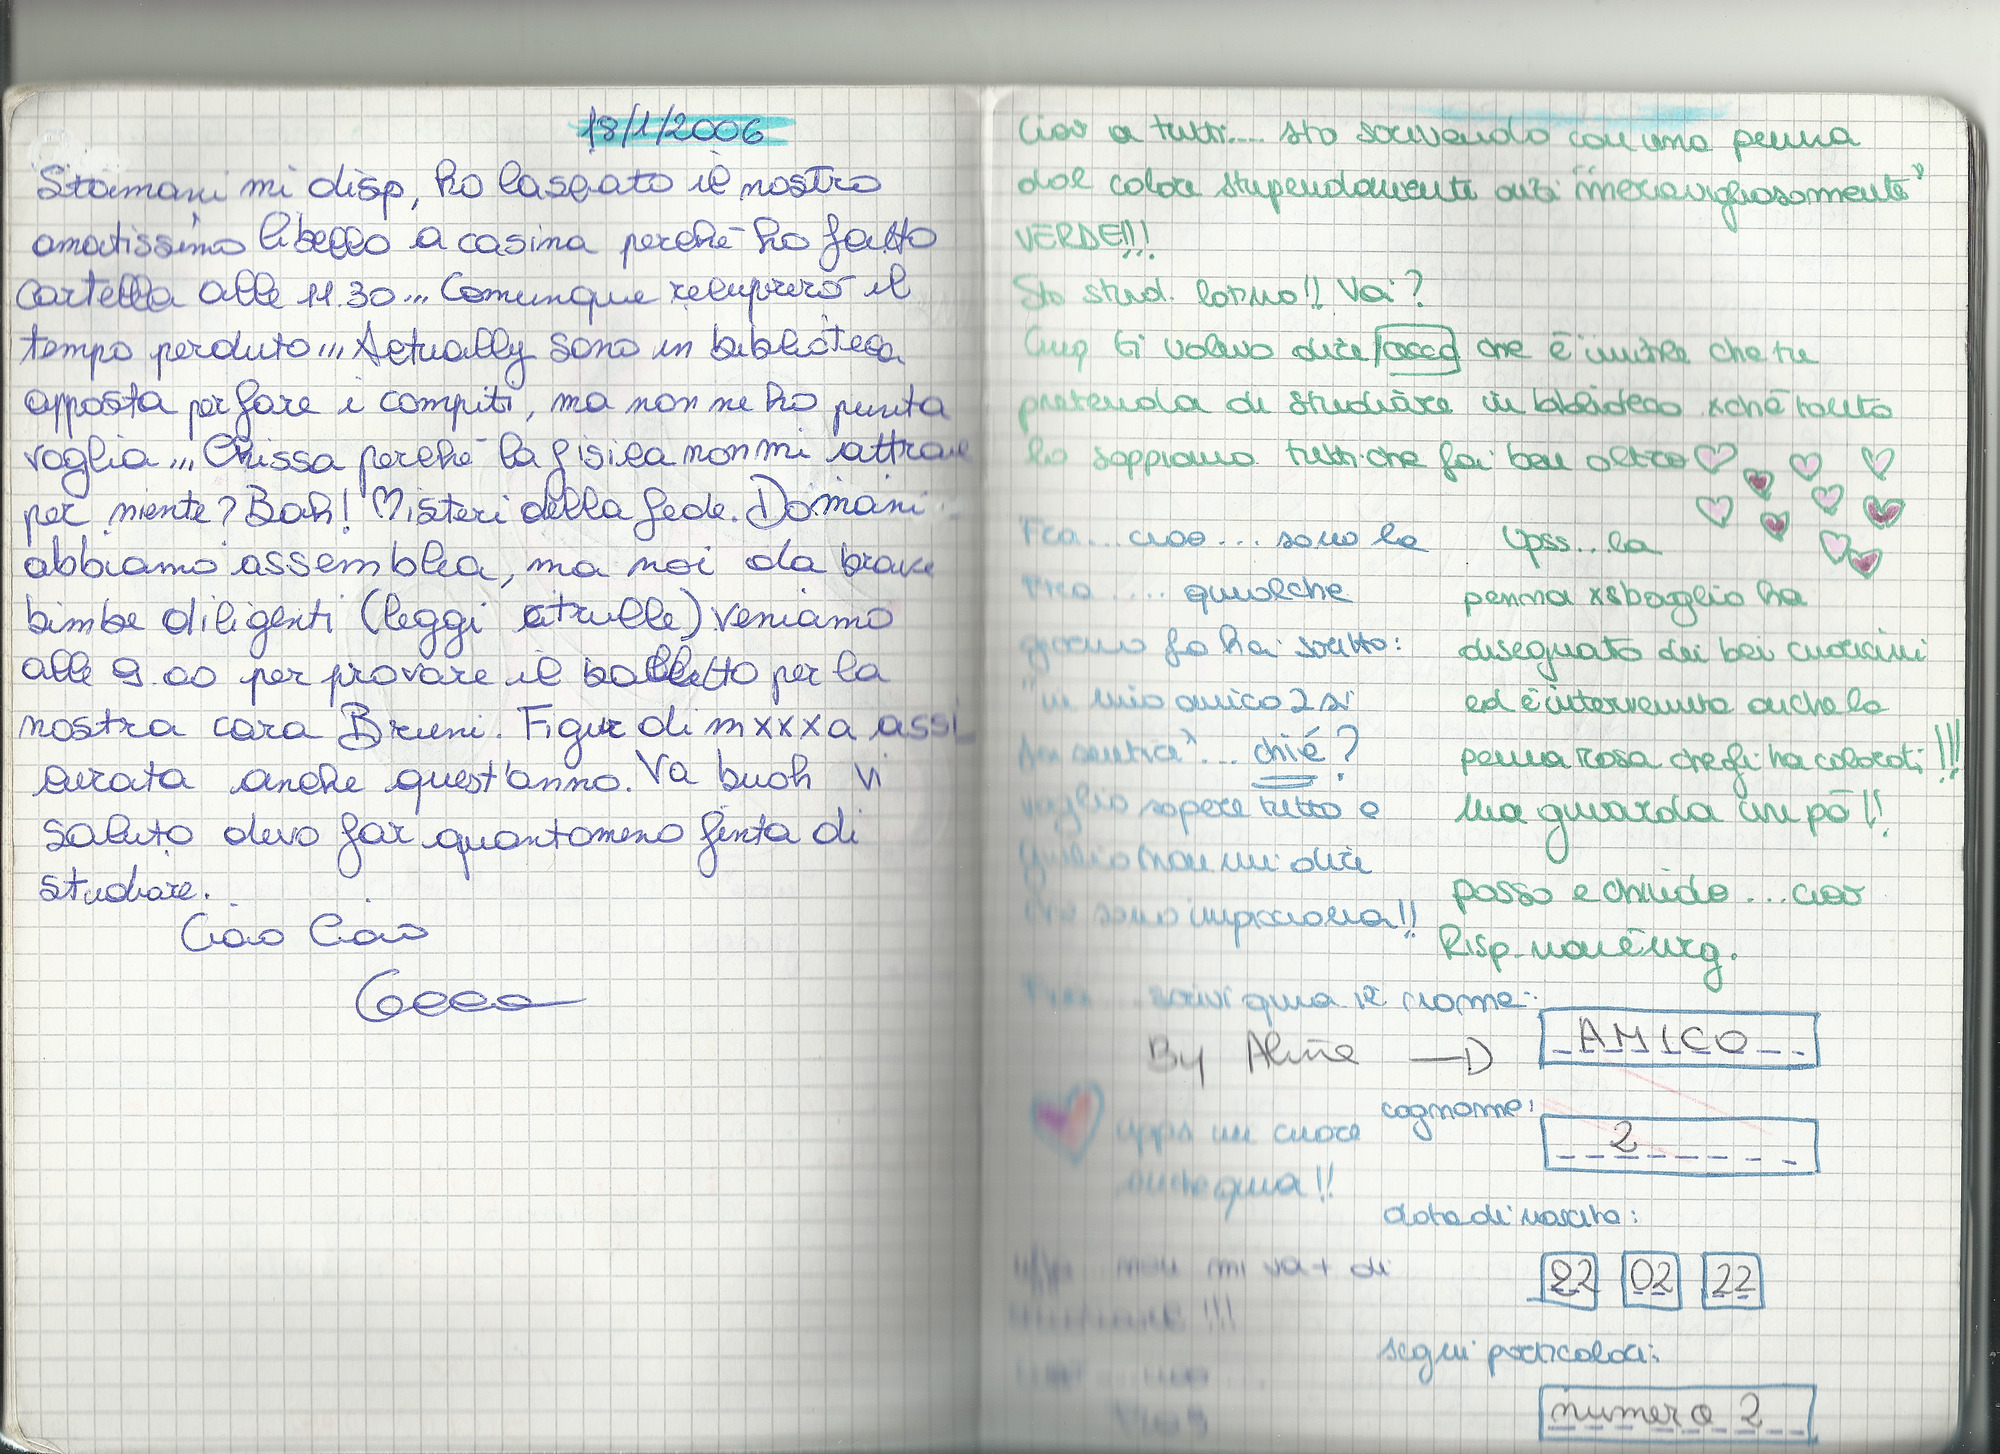 18/1/2006
Stamani mi disp, ho lasciato il nostro
amatissimo libello a casina perchè ho fatto
cartella alle 11.30... Comunque recupererò il
tempo perduto... Actually sono in biblioteca
apposta per fare i compiti, ma non ne ho punta
voglia... Chissà perchè la fisica non mi attrae
per niente? Boh! Misteri della fede. Domani
abbiamo assemblea, ma noi da brave
bimbe diligenti (leggi citrulle) veniamo
alle 9.00 per provare il balletto per la
nostra cara Bruni. Figur di mxxxa assi
curata anche quest'anno. Va buoh vi
saluto devo far quantomeno finta di
studiare.
Ciao Ciao
Ciao a tutti.... sto scrivendo con una penna
dal colore stupendamente anzi "meravigliosamente"
VERDE!!!
Sto stud. latino!! Vai?
Cmq ti volevo dire che è inutile che tu
pretenda di studiare in biblioteca xchè tanto
lo sappiamo tutti che fai ben altro
Fra... ciao... sono la
.... qualche
giorno fa hai scritto:
"un mio amico 2 si
... chi é?
voglio sapere tutto e
Giulia non mi dire
che sono impicciona!!
Upss...la
penna xsbaglio ha
disegnato dei bei cuoricini
ed è intervenuta anche la
penna rosa che gli ha colorati!!!
Ma guarda un pò!!
passo e chiudo...ciao
Risp. non é urg.
scrivi qua il nome:
By Aline
AMICO
cognome:
2
upps un cuore
anche qua!!
data di nascita:
22 02 22
non mi va + di
!!!
segni particolari:
numero 2